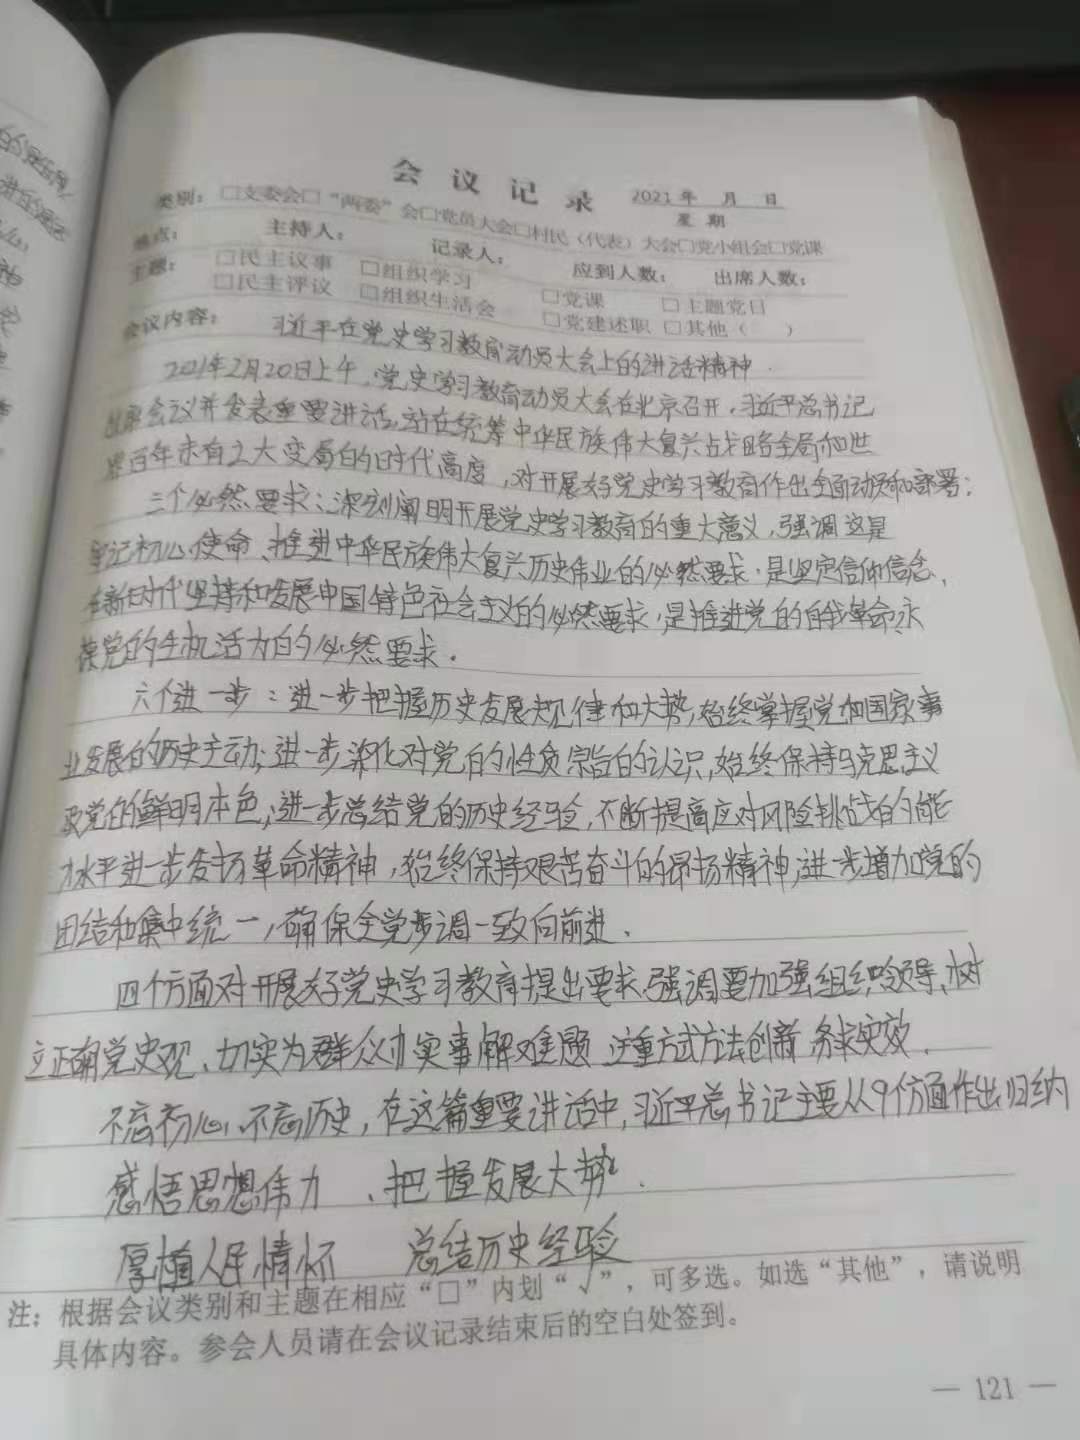 会议记录 2021年 月 日
星期
类别：□支委会□“两委”会□党员大会□村民（代表）大会□党小组会□党课
地点： 主持人： 记录人： 应到人数： 出席人数：
主题： □民主议事 □组织学习 □党课 □主题党日
□民主评议 □组织生活会 □党建述职 □其他（ ）
会议内容： 习近平在党史学习教育动员大会上的讲话精神.
2021年2月20日上午,党史学习教育动员大会在北京召开,习近平总书记
出席会议并发表重要讲话,站在统筹中华民族伟大复兴战略全局和世
界百年未有之大变局的时代高度,对开展好党史学习教育作出全面动员和部署;
三个必然要求:深刻阐明开展党史学习教育的重大意义,强调这是
牢记初心使命、推进中华民族伟大复兴历史伟业的必然要求.是坚定信仰信念、
在新时代坚持和发展中国特色社会主义的必然要求.是推进党的自我革命永
葆党的生机活力的必然要求.
六个进一步:进一步把握历史发展规律和大势,始终掌握党和国家事
业发展的历史主动;进一步深化对党的性质宗旨的认识,始终保持马克思主义
政党的鲜明本色;进一步总结党的历史经验,不断提高应对风险挑战的能
力水平进一步发扬革命精神,始终保持艰苦奋斗的昂扬精神;进一步增加党的
团结和集中统一,确保全党步调一致向前进.
四个方面对开展好党史学习教育提出要求.强调要加强组织领导、树
立正确党史观、切实为群众办实事解难题 注重方式方法创新 务求实效.
不忘初心,不忘历史,在这篇重要讲话中,习近平总书记主要从9个方面作出归纳
感悟思想伟力、把握发展大势.
厚植人民情怀 总结历史经验
注：根据会议类别和主题在相应“□”内划“√”，可多选。如选“其他”，请说明
具体内容。参会人员请在会议记录结束后的空白处签到。
— 121 —